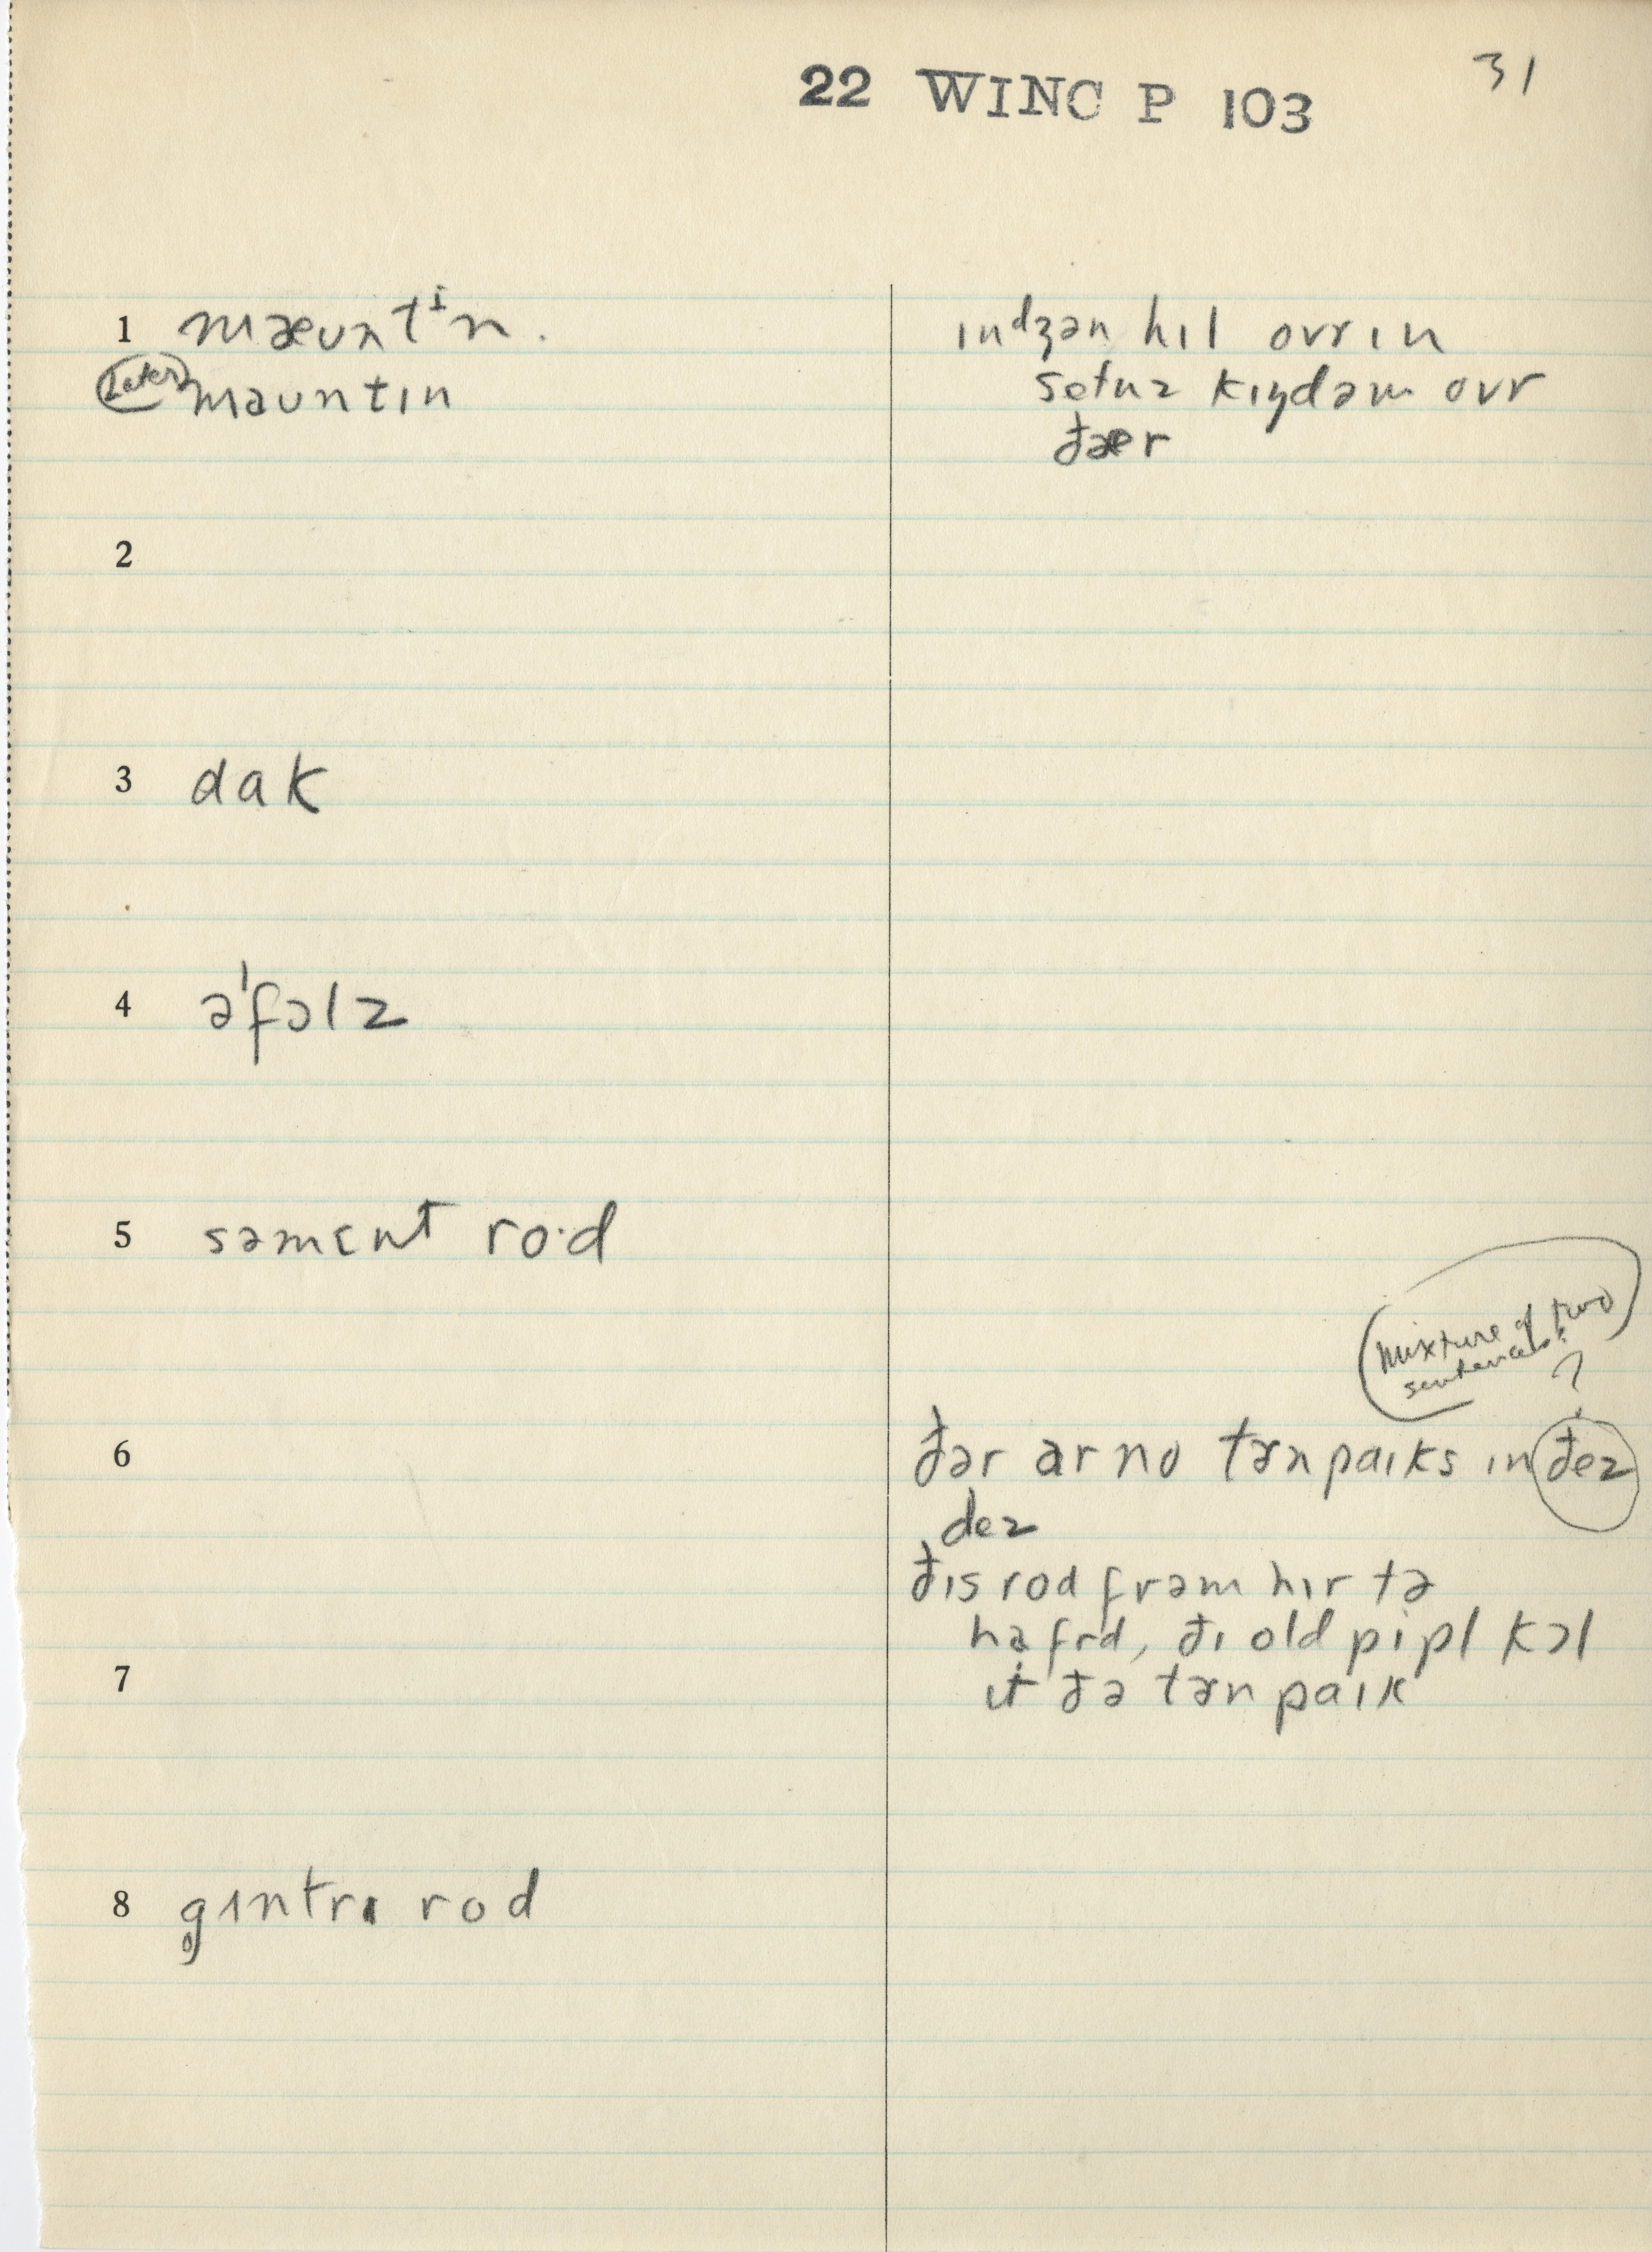 31
22 WINC P 103
1 mæʊntⁱn.
(Later) maʊntɪn
ɪnᵈʒən hɪl ovr ɪn
setn̩z kɪŋdəm ovr
ðær
2
3 dak
4 ə'fɔlz
5 səmɛnt ro·d
(mixture of two
sentences?
?
6
ðər ar no tɚnpaɪks ɪn ðez
dez
ðɪs rod frəm hɪr tə
ha frd, ðɪ old pipl kɔl
7
ɪt ðə tɚnpaɪk
8 g̥ɪntrɪ rod